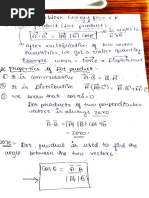 Work, Energy, Power
Product (Dot product)
A⃗·B⃗ = |A| |B| cosθ
After multiplication of two vector
quantities, we get a scalar quantity
Example work = force × Displacement
Properties of Dot product:-
① It is commutative A⃗·B⃗ = B⃗·A⃗
② It is Distributive A⃗·B⃗ = |A||B| cosθ
③ we know that cos90 = 0
Dot products of two perpendicular
vectors is always zero.
A⃗·B⃗ = |A||B| cos 90
= zero
Dot product is used to find the
angle between the two vectors
cosθ = A⃗·B⃗ / |A||B|